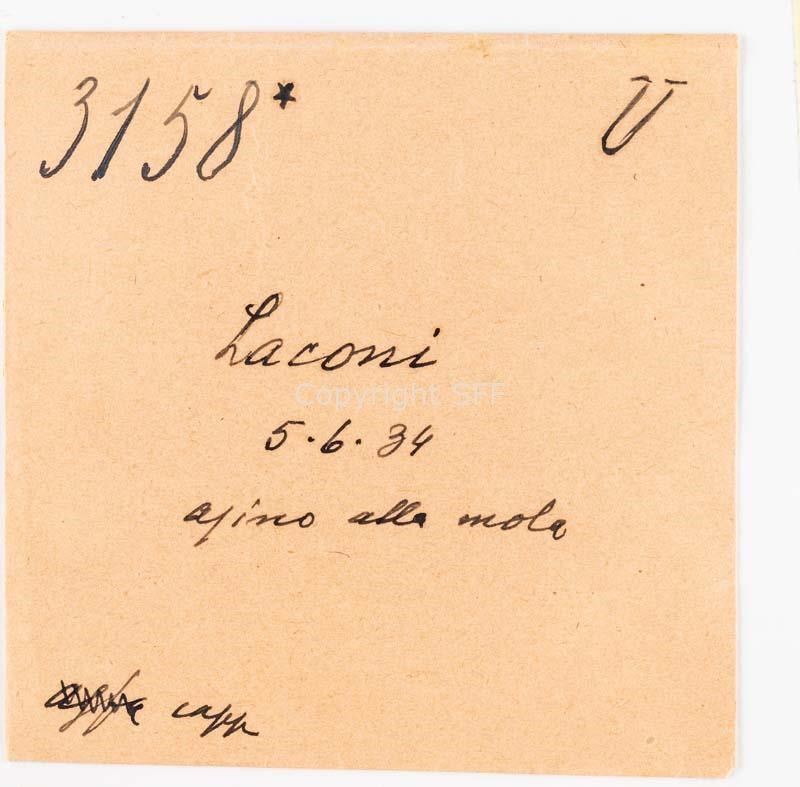 3158* U
Laconi
Copyright SFF
5.6.34
asino alla mola
capp